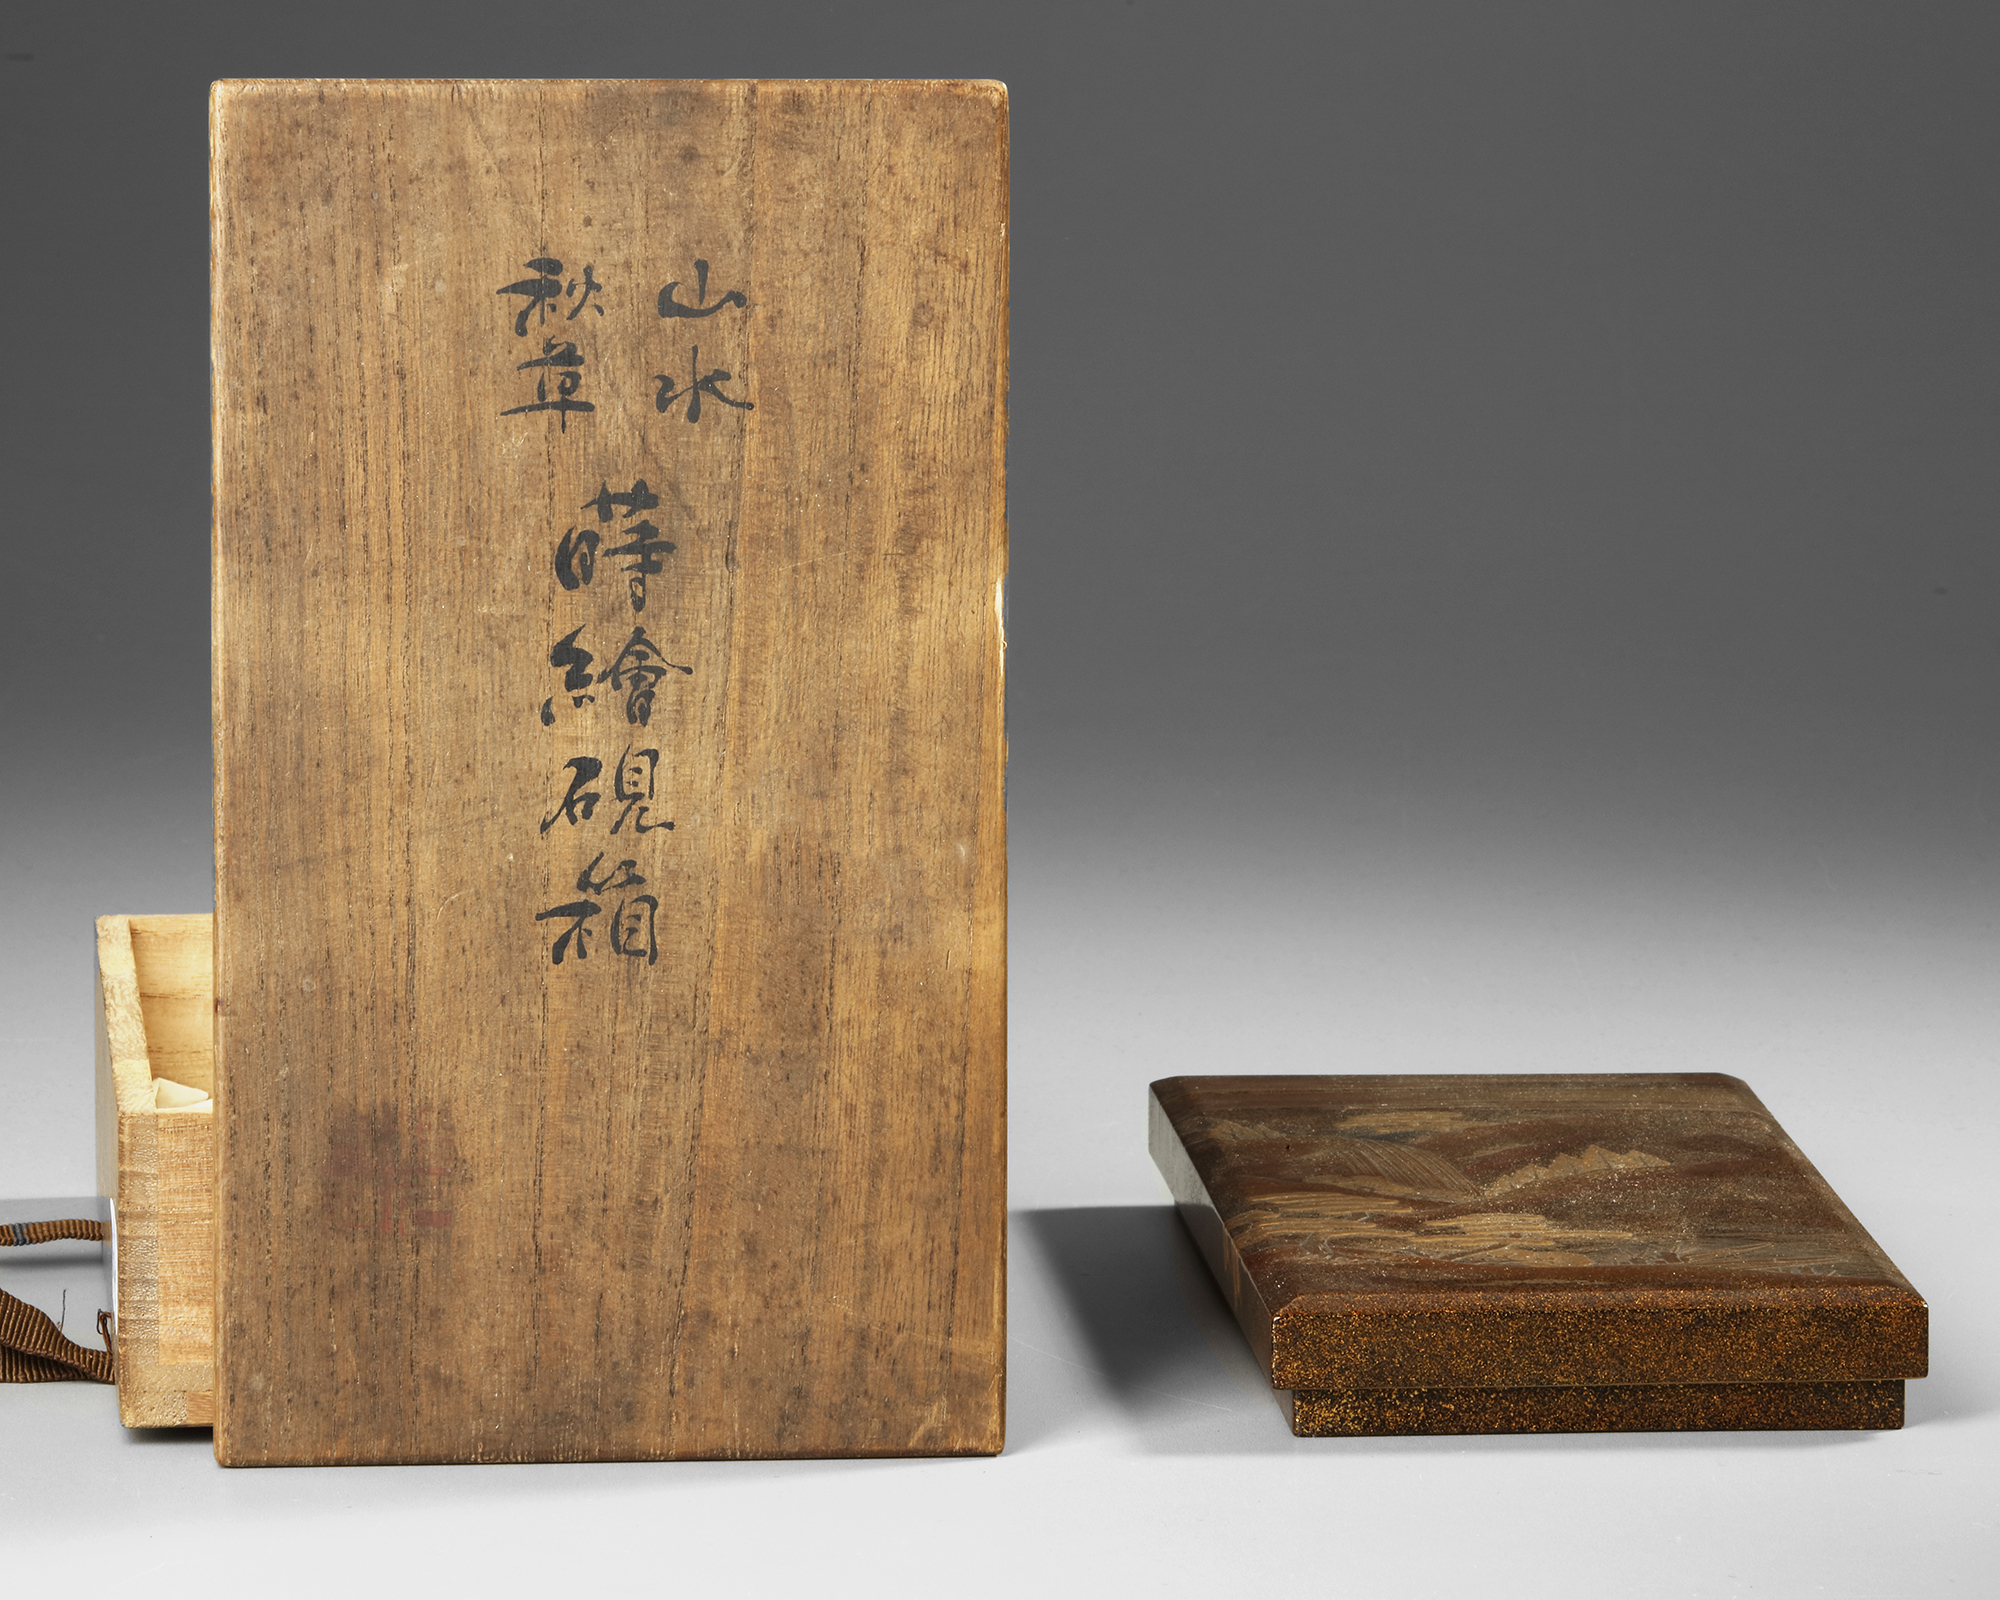 山水
秋草
蒔繪硯箱